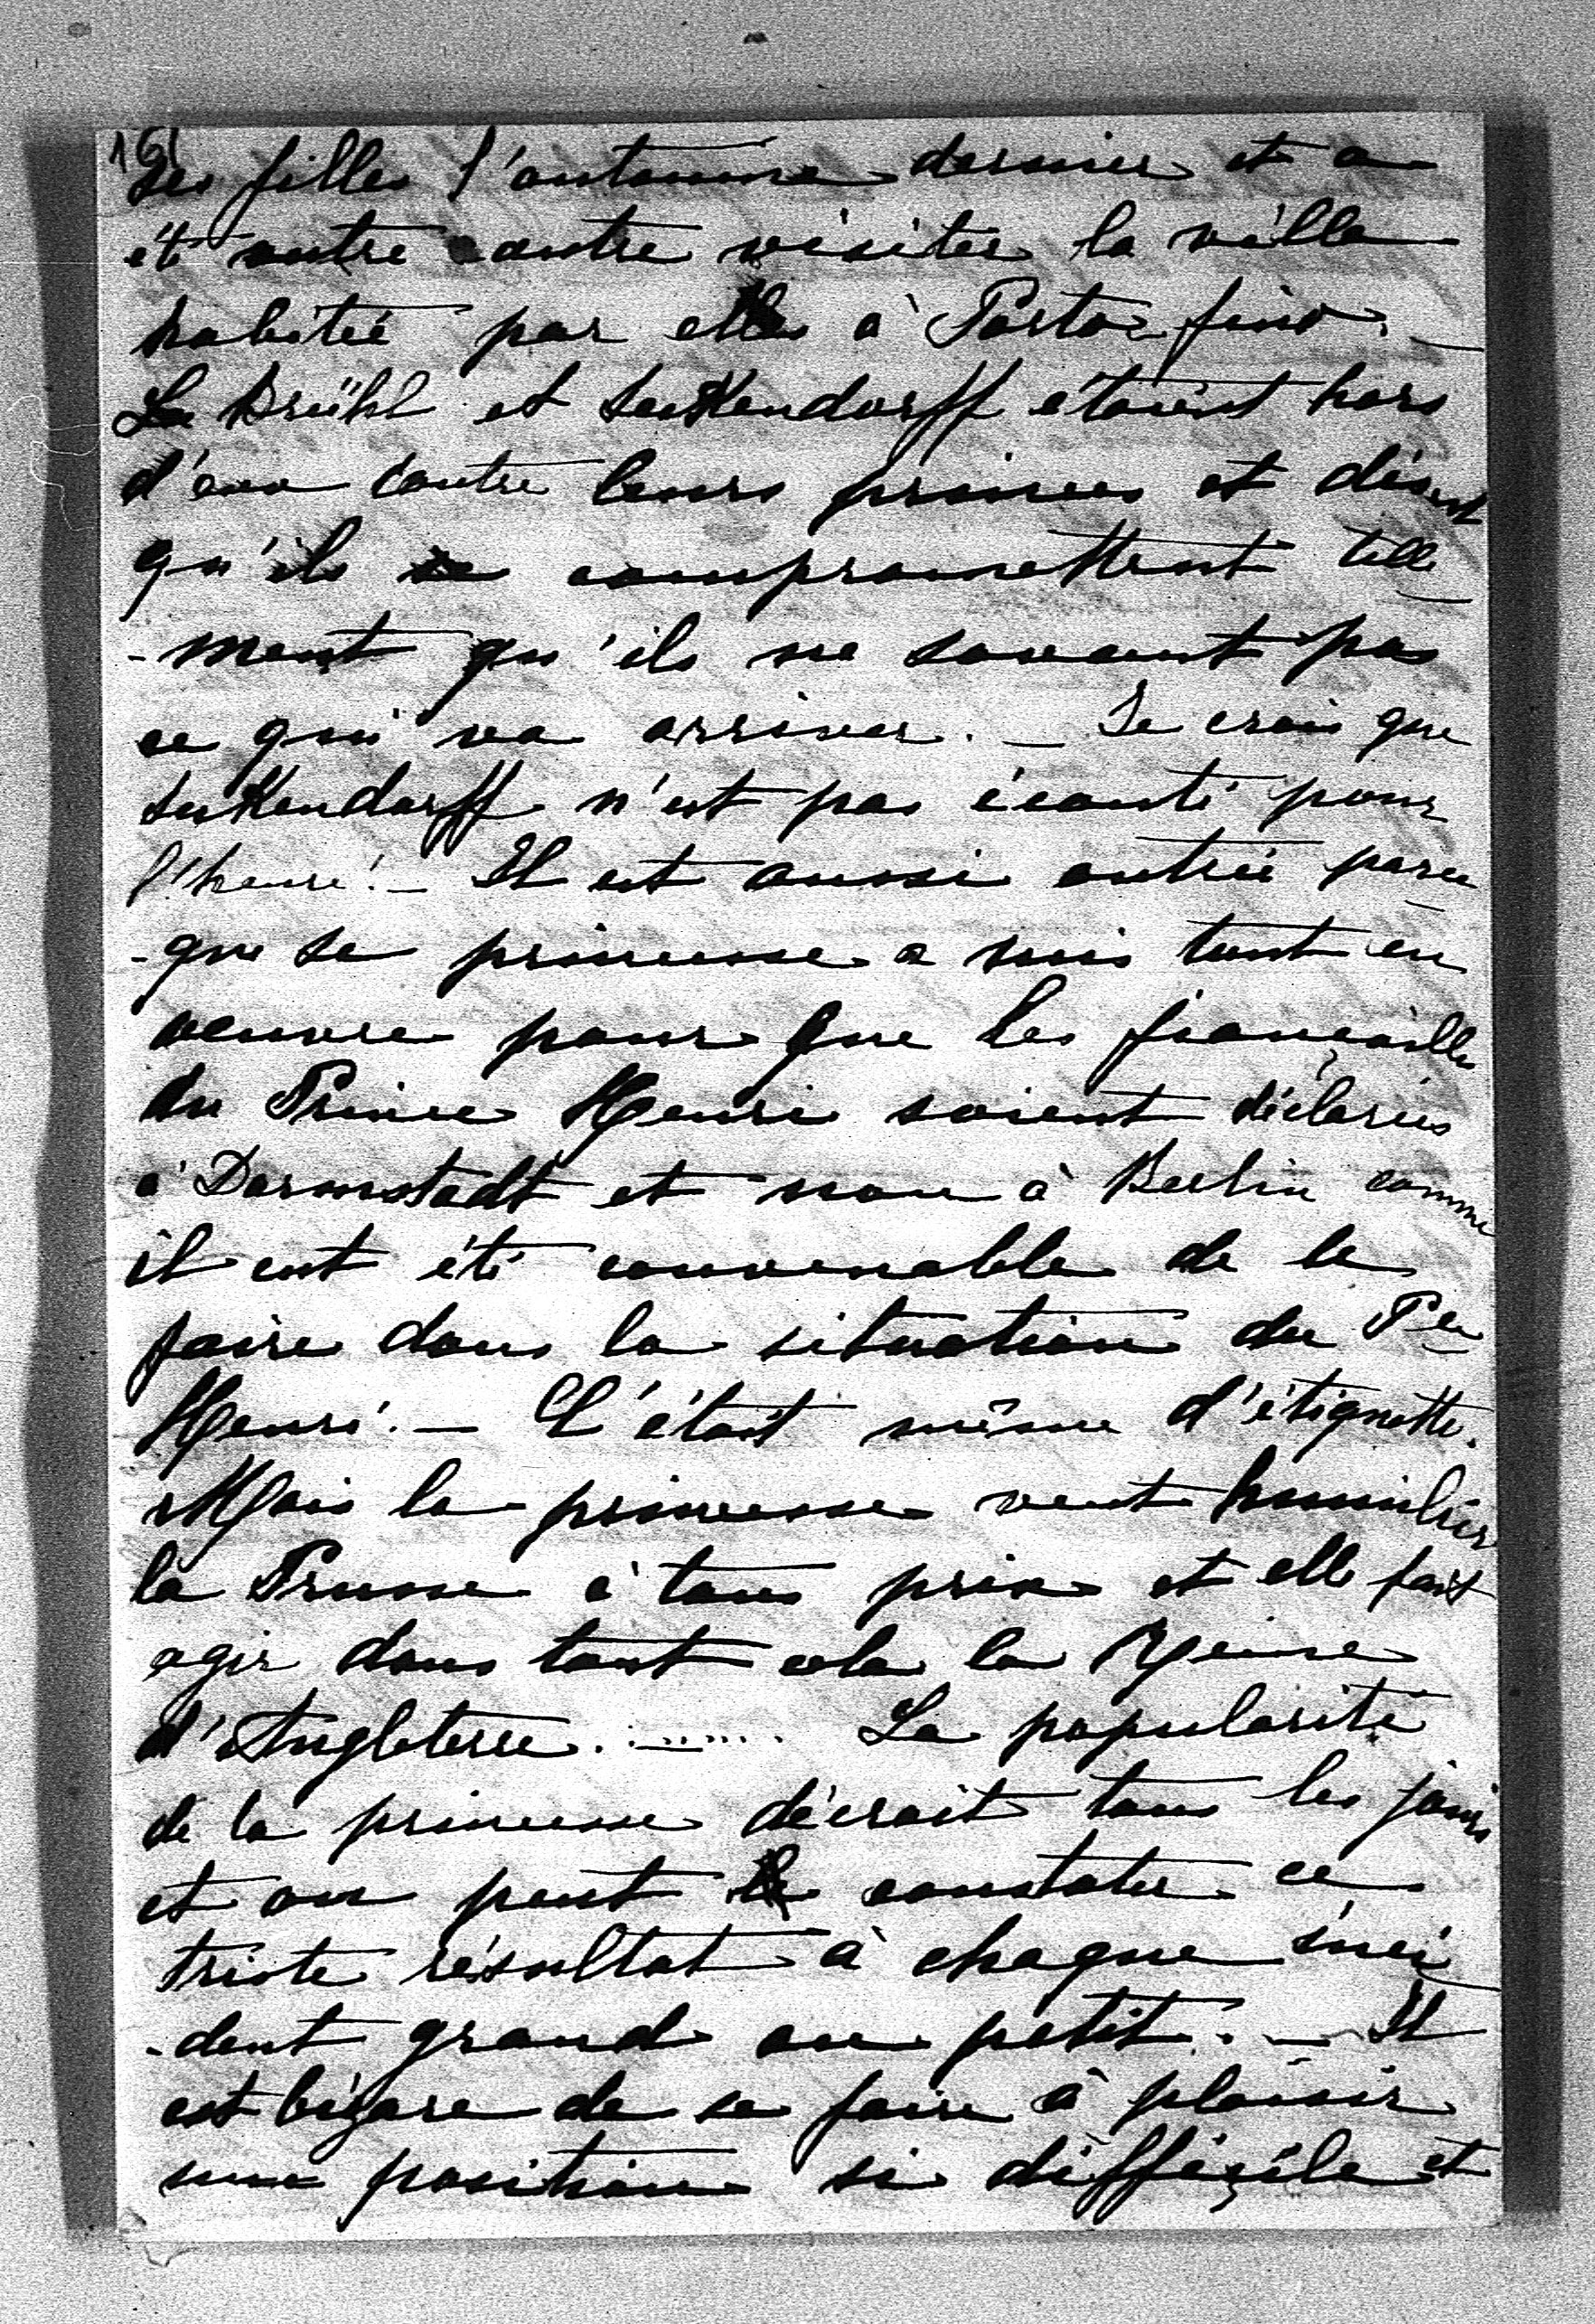 161
ses filles l'automne dernier et a
été outre contre visiter la villa
habitée par elles à Porto fino.
La Brühl et Seckendorff étaient hors
d'eux contre leurs princes et disent
qu'ils se compromettent telle
-ment qu'ils ne savent pas
ce qui va arriver. — Je crois que
Seckendorff n'est pas écouté pour
l'heure. — Il est aussi outré parce
-que la princesse a mis tout en
oeuvre pour que les fiançailles
du Prince Henri soient déclarées
à Darmstadt et non à Berlin comme
il eut été convenable de le
faire dans la situation du Pce
Henri. — C'était même d'étiquette.
Mais la princesse veut humilier
la Prusse à tous prix et elle fait
agir dans tout cela la Reine
d'Angleterre. ........ La popularité
de la princesse décroit tous les jours
et on peut constater ce
triste résultat à chaque inci
-dent grand ou petit. — Il
est bizare de se faire à plaisir
une position si difficile et